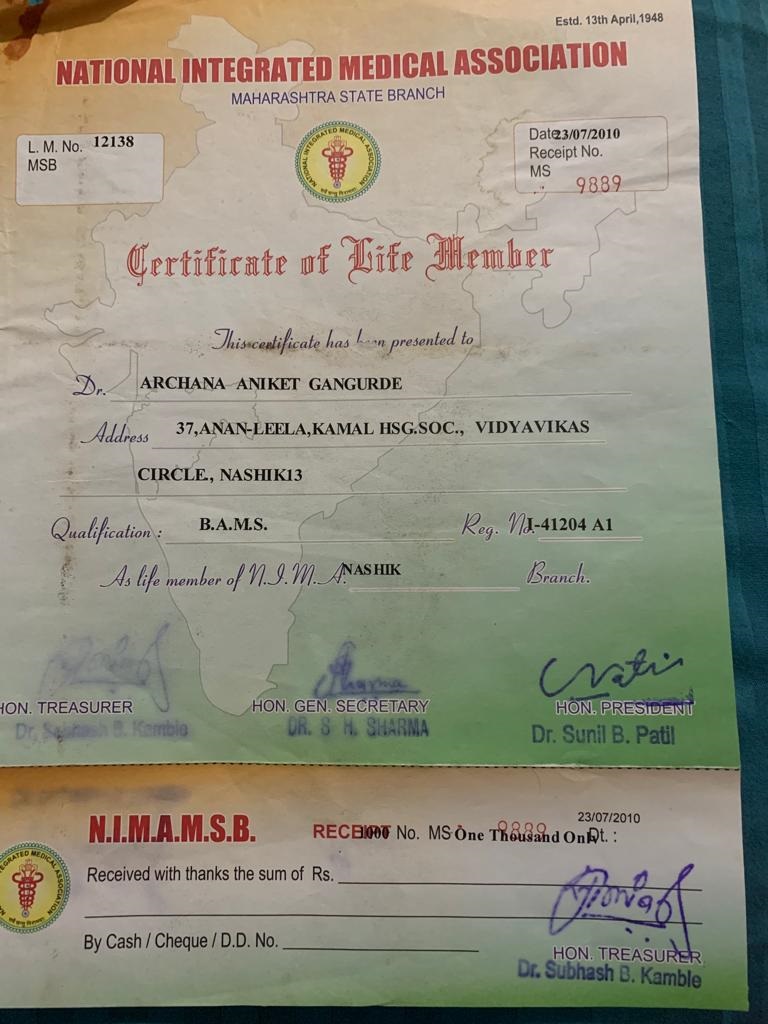 Estd. 13th April,1948
NATIONAL INTEGRATED MEDICAL ASSOCIATION
MAHARASHTRA STATE BRANCH
L. M. No. 12138
MSB
NATIONAL INTEGRATED MEDICAL ASSOCIATION
Date 23/07/2010
Receipt No.
MS
9889
Certificate of Life Member
This certificate has been presented to
Dr. ARCHANA ANIKET GANGURDE
Address 37,ANAN-LEELA,KAMAL HSG.SOC., VIDYAVIKAS
CIRCLE., NASHIK13
Qualification : B.A.M.S. Reg. No. I-41204 A1
As life member of N.I.M.A. NASHIK Branch.
HON. TREASURER HON. GEN. SECRETARY HON. PRESIDENT
Dr. Subhash B. Kamble DR. S H. SHARMA Dr. Sunil B. Patil
23/07/2010
N.I.M.A.M.S.B. RECEIPT 1000 No. MS One Thousand Only 9889 Dt. :
Received with thanks the sum of Rs.
By Cash / Cheque / D.D. No.
HON. TREASURER
Dr. Subhash B. Kamble